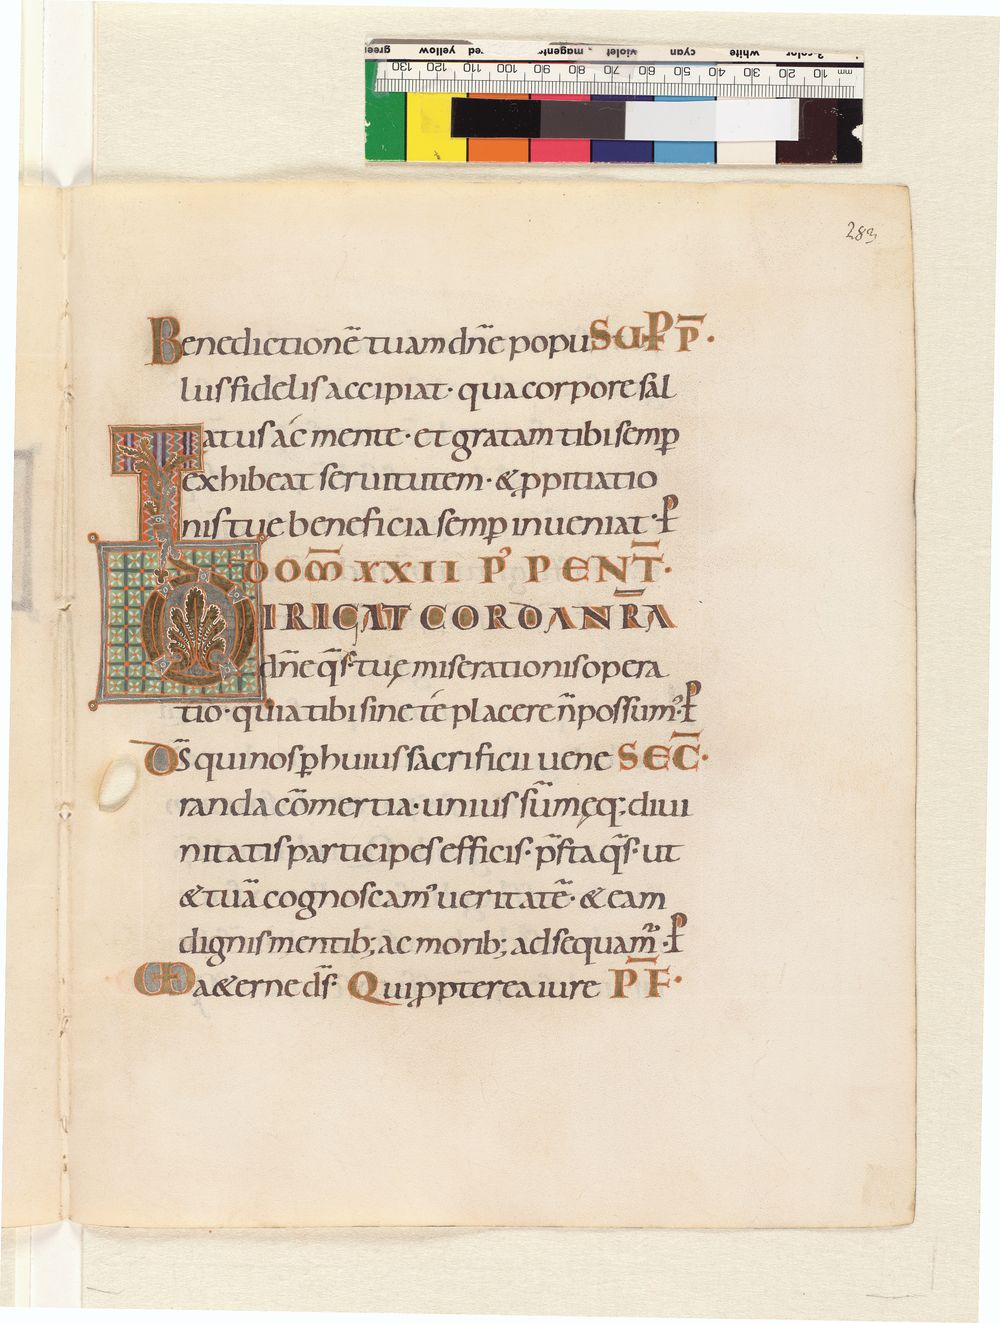 283
Benedictionē tuam dn̄e popu SUP P̄·
lus fidelis accipiat· qua corpore sal
uatus ac mente· et gratam tibi semp̱
exhibeat seruitutem· & ꝓpitiatio
nis tuę beneficia semp̱ inueniat· P̱
DOM̄ XXII P' PENT̄·
DIRIGAT CORDA NR̄A
dn̄e q̄s· tuę miserationis opera
tio· quia tibi sine te placere n̄ possum'· P̱
Ds̄ qui nos p̱ huius sacrificii uene SEC̄·
randa cōmertia· unius sūmęq; diui
nitatis participes efficis· p̄sta q̄s· ut
& tuā cognoscam' ueritatē· & eam
dignis mentib; ac morib; adsequam̄· P̱
VD a&erne ds̄· Qui ꝓpterea iure P̄F̄·